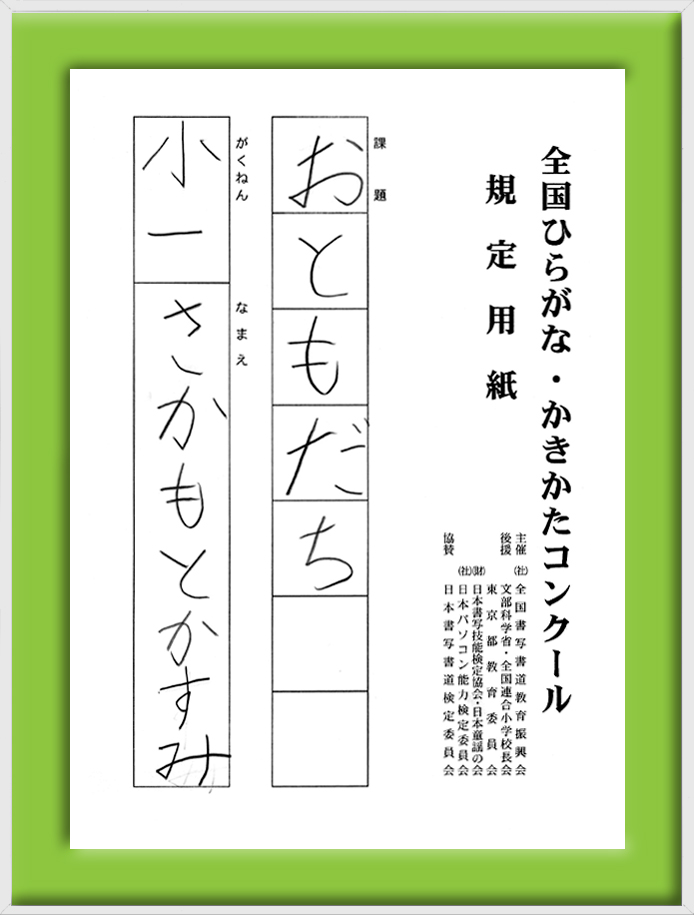 全国ひらがな・かきかたコンクール
規定用紙
主催 (社)全国書写書道教育振興会
後援 文部科学省・全国連合小学校長会
東京都教育委員会
(財)日本書写技能検定協会・日本童謡の会
(社)日本パソコン能力検定委員会
協賛 日本書写書道検定委員会
課題
おともだち
がくねん
小一
なまえ
さかもとかすみ